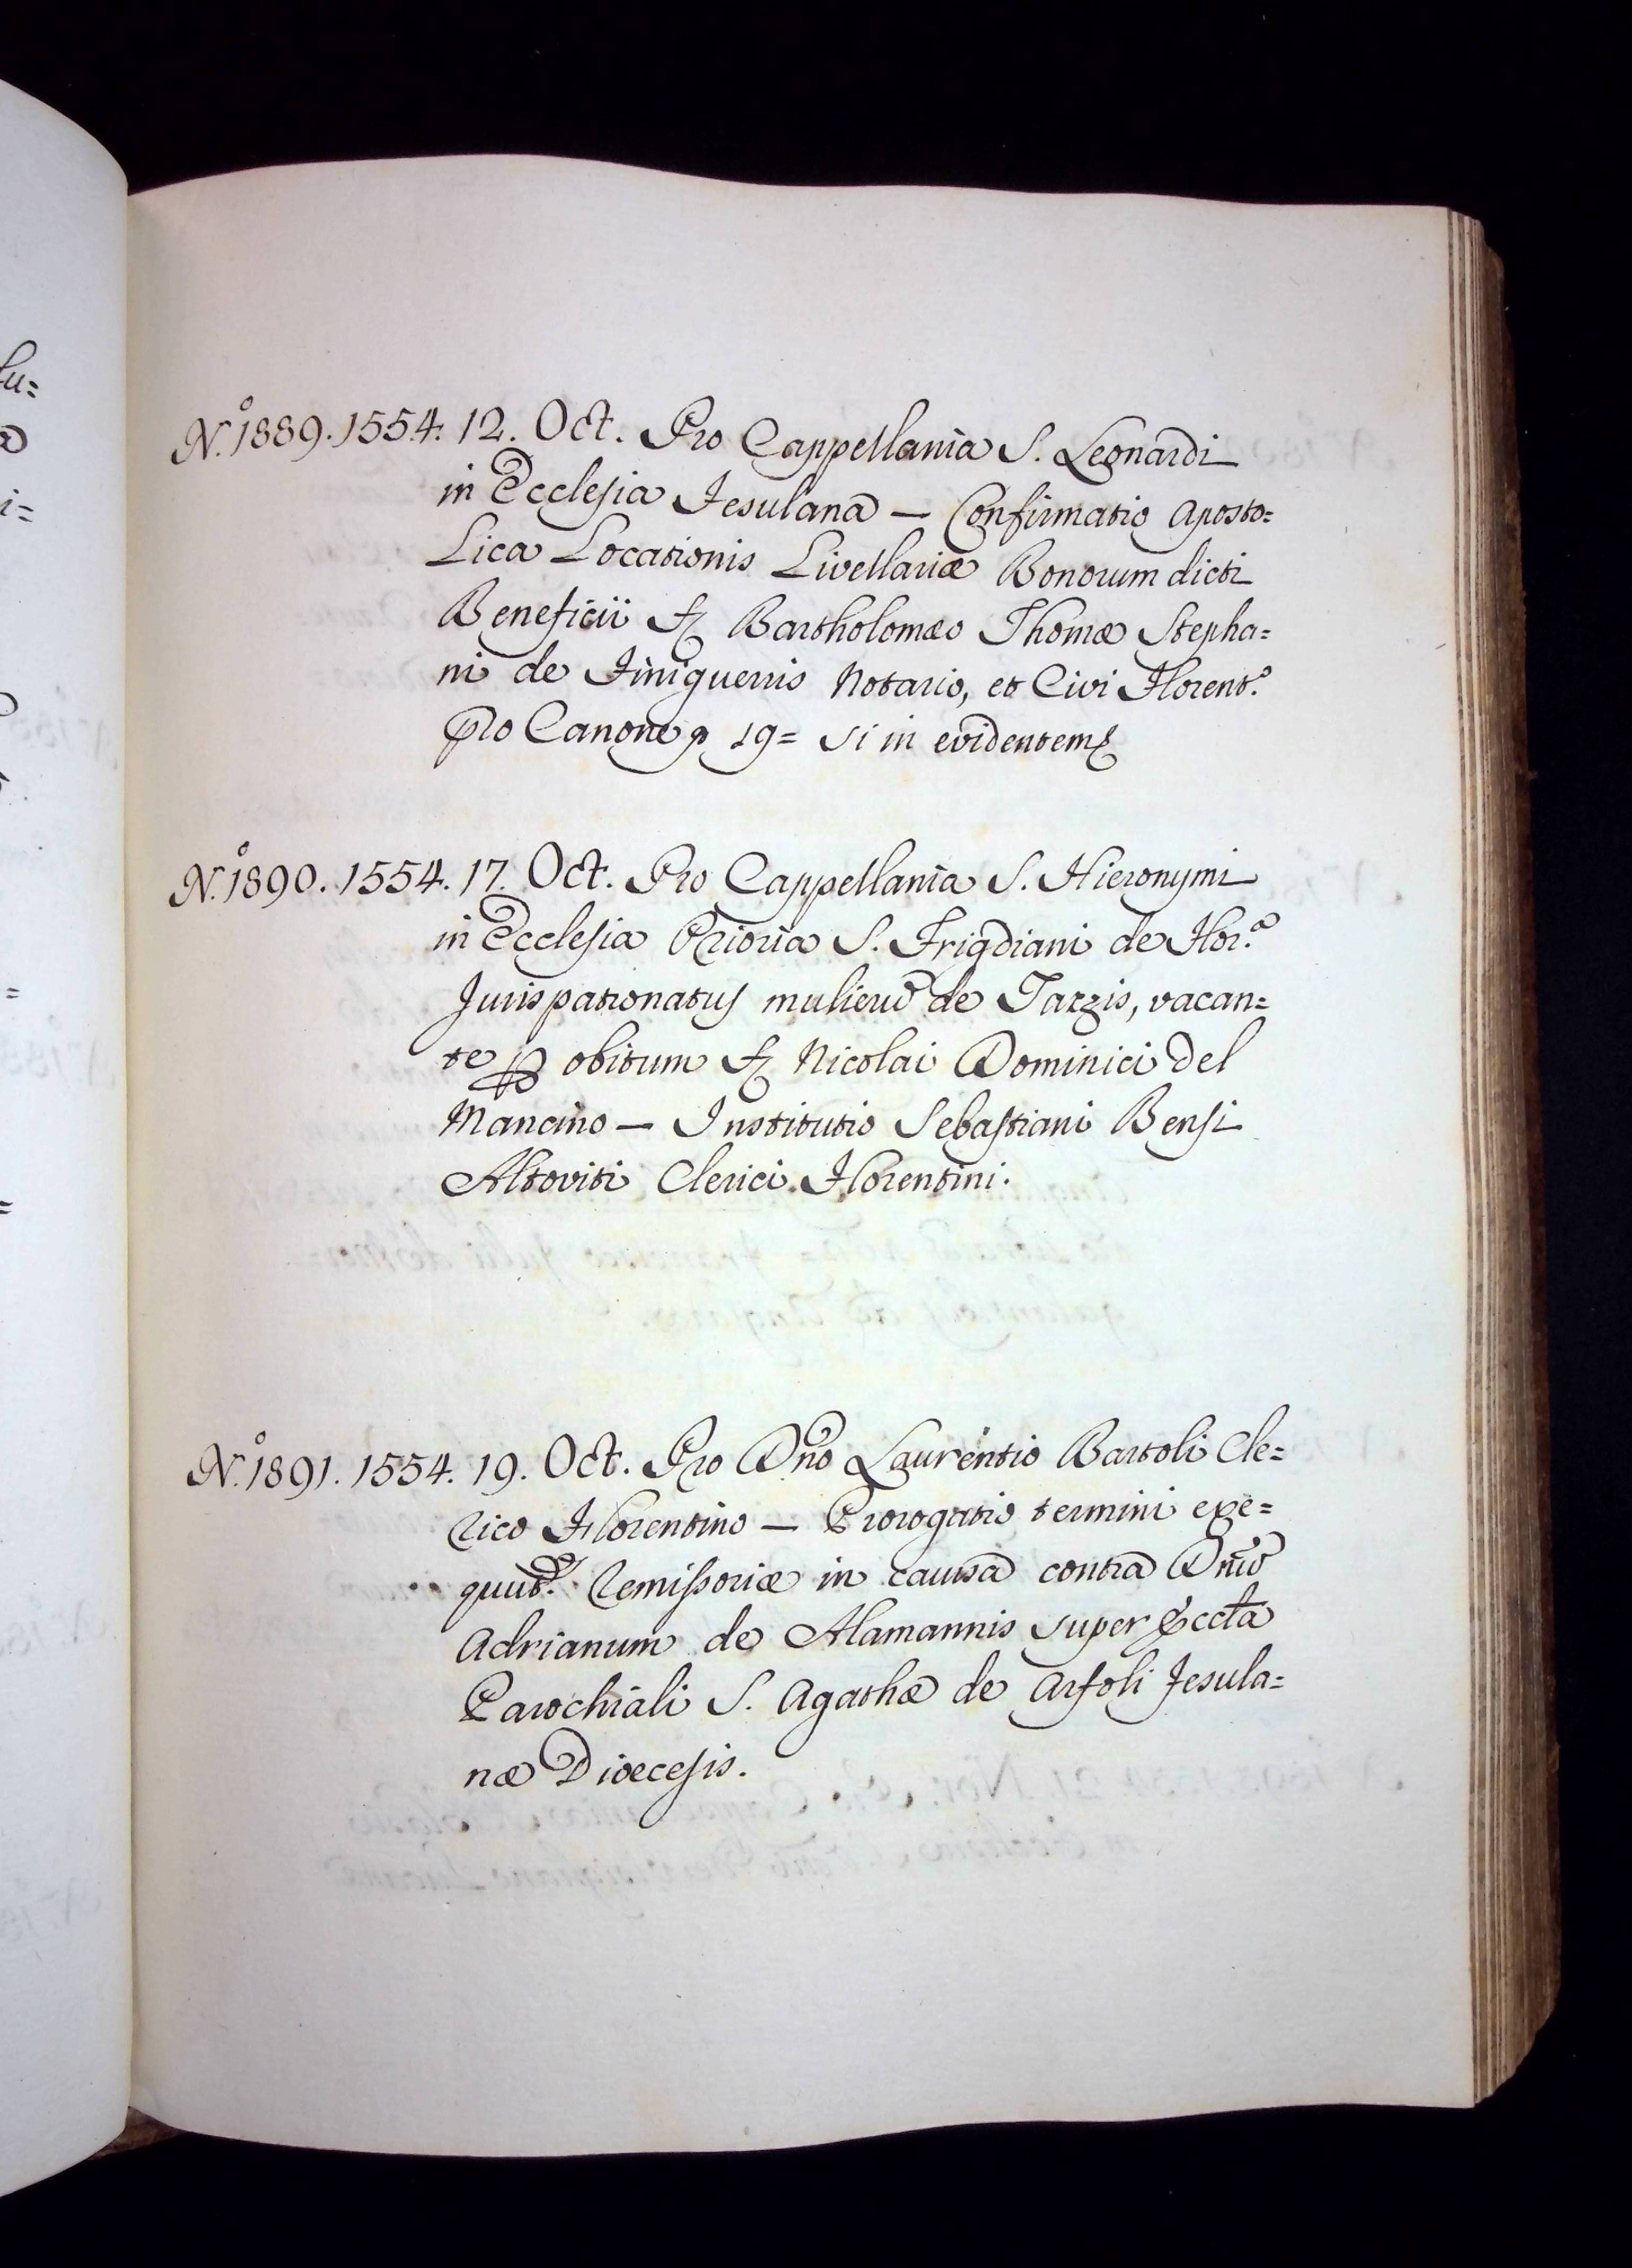 N.º 1889. 1554. 12. Oct. Pro Cappellania S. Leonardi
in Ecclesia Fesulana — Confirmatio Aposto=
lica Locationis Livellariæ Bonorum dicti
Beneficii Bartholomæo Thomæ Stepha=
ni de Finiguerris Notario, et Civi Florent.º
pro Canone 19= si in evidentem
N.º 1890. 1554. 17. Oct. Pro Cappellania S. Hieronymi
in Ecclesia Prioria S. Frigdiani de Flor.ª
Jurispatronatus mulierū de Tazzis, vacan=
te obitum Nicolai Dominici del
Mancino — Institutio Sebastiani Bensi
Altoviti Clerici Florentini.
N.º 1891. 1554. 19. Oct. Pro Dño Laurentio Bartoli Cle=
rico Florentino — Prorogatio termini exe=
Remissoriæ in causa contra Dñū
Adrianum de Alamannis super Eccla
Parochiali S. Agathæ de Arfoli Fesula=
næ Diœcesis.
fu=
i=
=
=